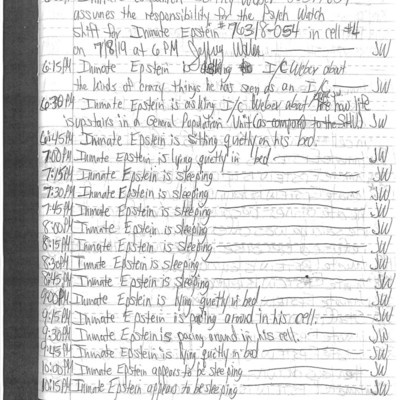 assumes the responsibility for the Psych Watch
shift for Inmate Epstein #76318-054 in cell #4
on 7/8/19 at 6 PM JW
6:15PM Inmate Epstein is asking I/C Weber about
the kinds of crazy things he has seen as an I/C JW
6:30PM Inmate Epstein is asking I/C Weber about how life
is upstairs in a General Population Unit (as compared to the SHU) JW
6:45PM Inmate Epstein is sitting quietly on his bed. JW
7:00PM Inmate Epstein is lying quietly in bed JW
7:15PM Inmate Epstein is sleeping JW
7:30PM Inmate Epstein is sleeping JW
7:45PM Inmate Epstein is sleeping JW
8:00PM Inmate Epstein is sleeping JW
8:15PM Inmate Epstein is sleeping JW
8:30PM Inmate Epstein is sleeping JW
8:45PM Inmate Epstein is sleeping JW
9:00PM Inmate Epstein is lying quietly in bed JW
9:15PM Inmate Epstein is pacing around in his cell. JW
9:30PM Inmate Epstein is pacing around in his cell. JW
9:45PM Inmate Epstein is lying quietly in bed JW
10:00PM Inmate Epstein appears to be sleeping JW
10:15PM Inmate Epstein appears to be sleeping JW